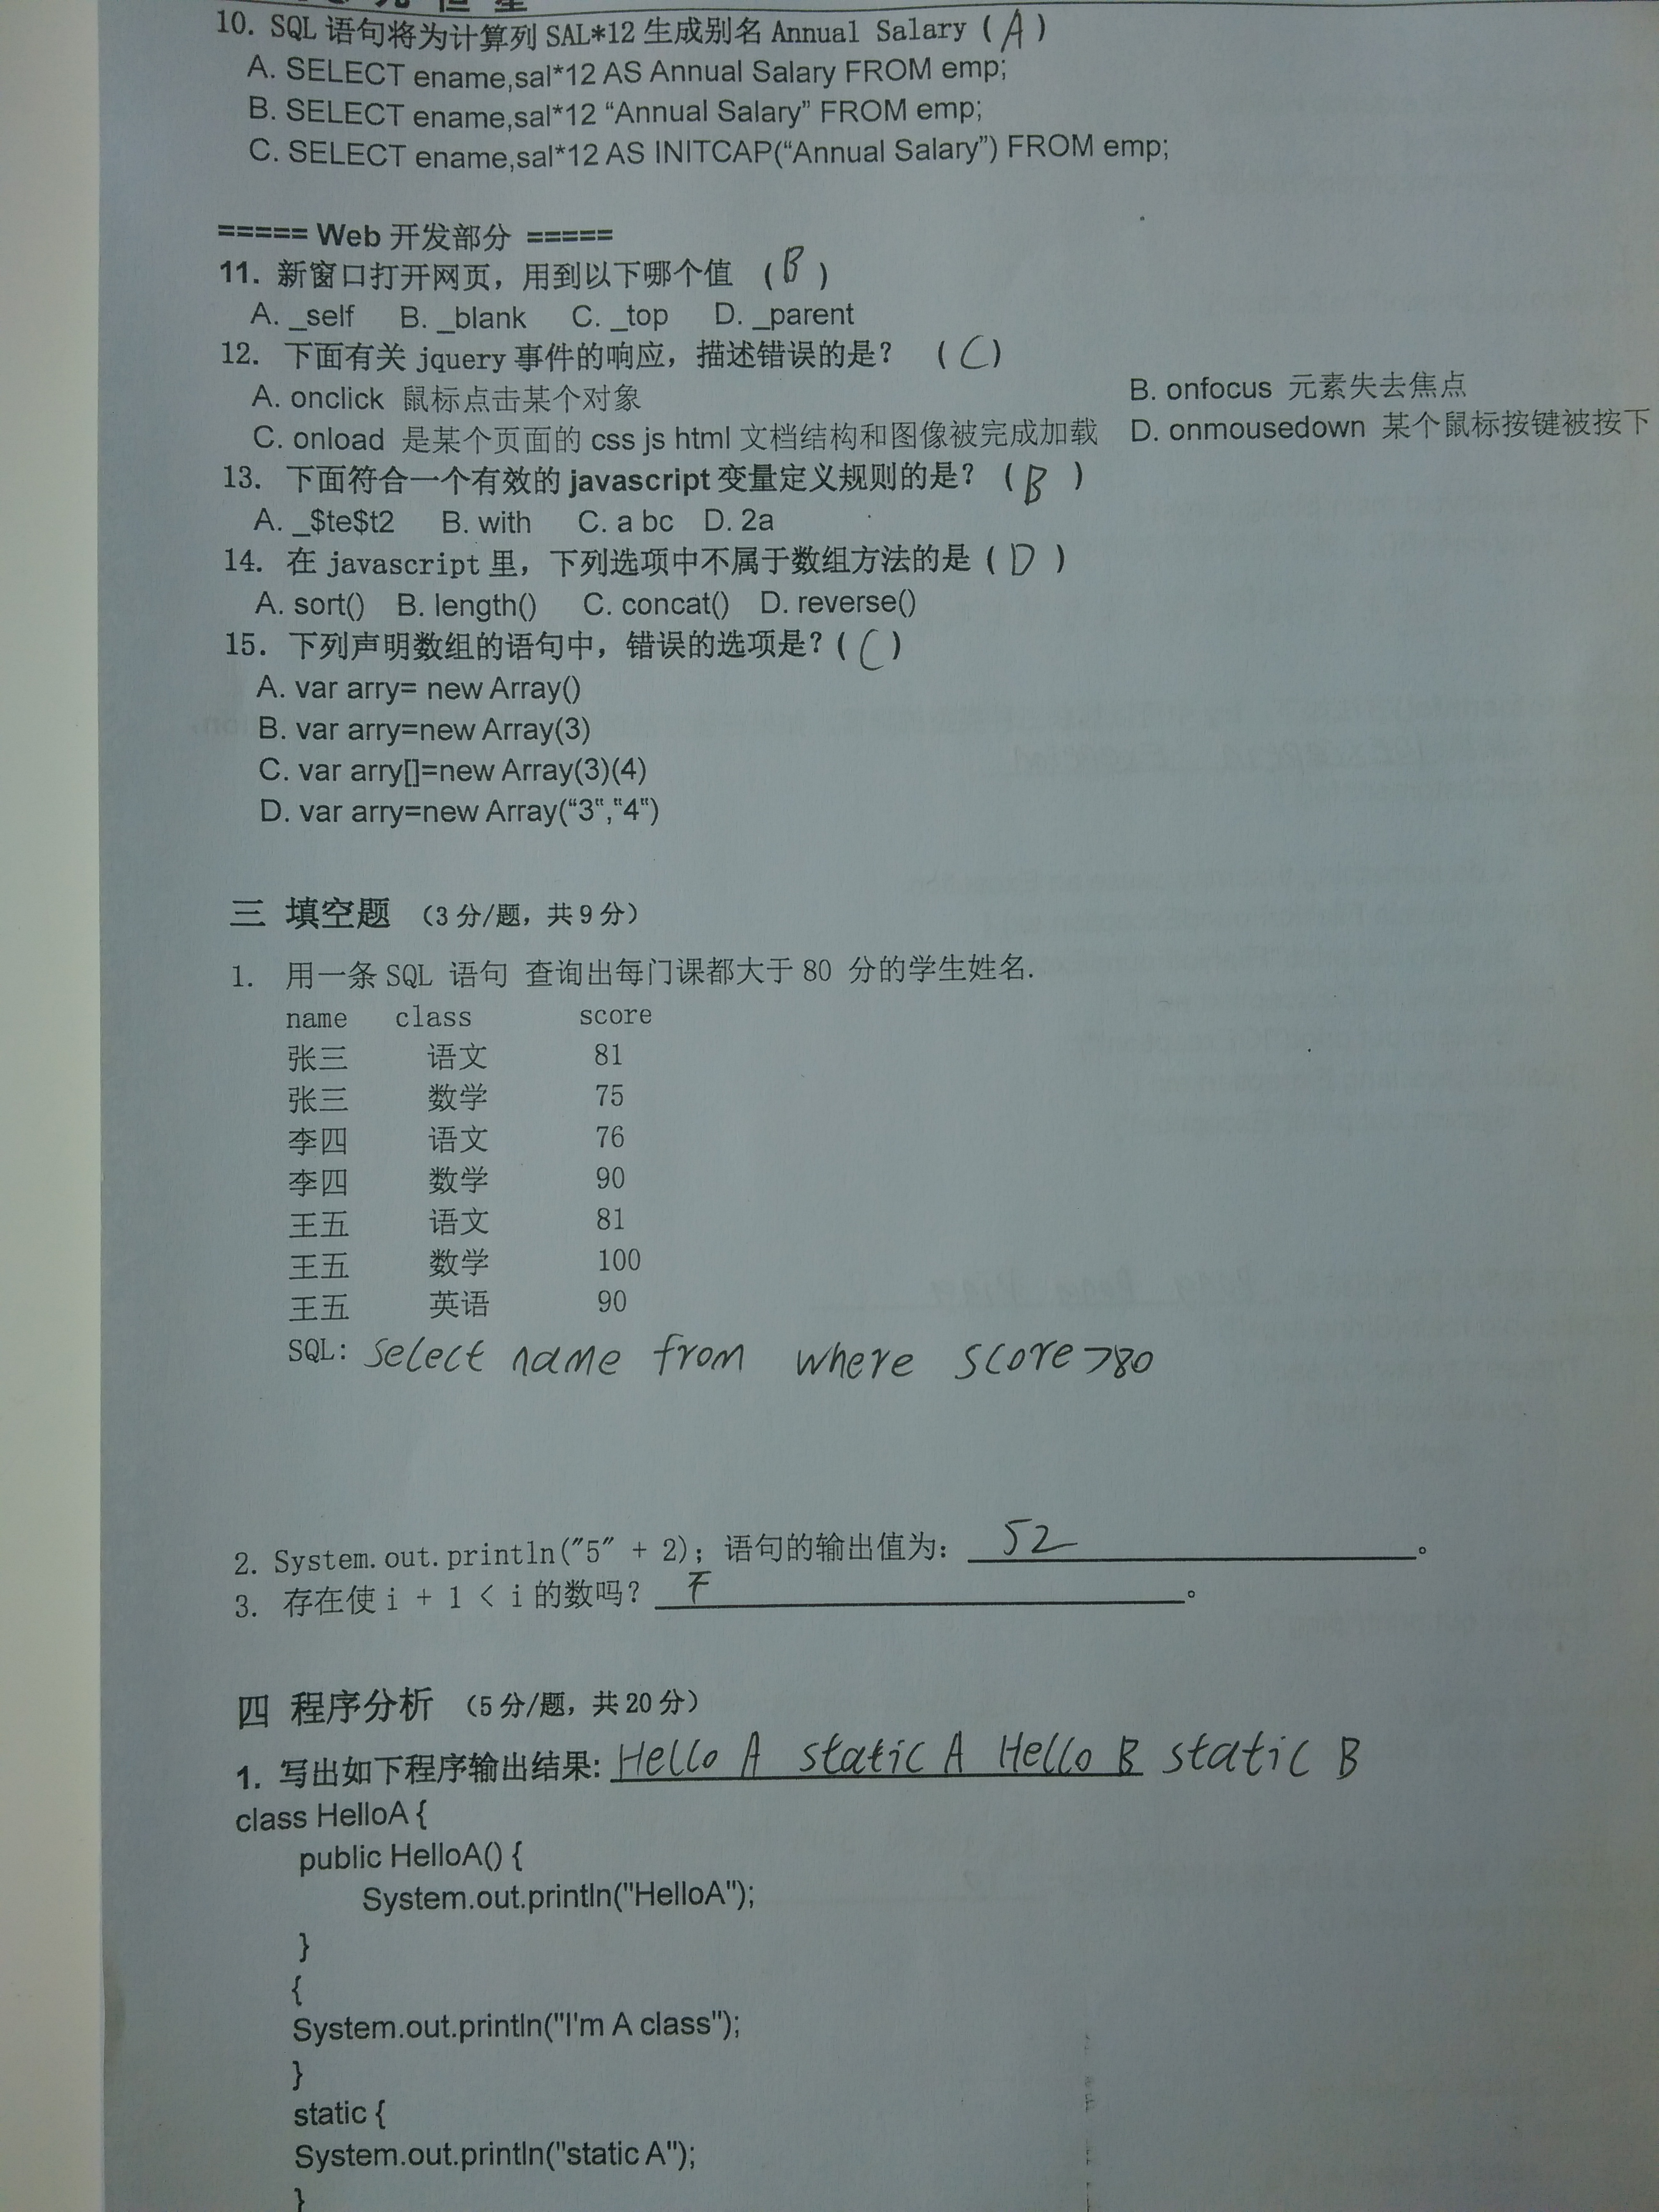 10. SQL 语句将为计算列 SAL*12 生成别名 Annual Salary ( A )
A. SELECT ename,sal*12 AS Annual Salary FROM emp;
B. SELECT ename,sal*12 “Annual Salary” FROM emp;
C. SELECT ename,sal*12 AS INITCAP(“Annual Salary”) FROM emp;
===== Web 开发部分 =====
11. 新窗口打开网页，用到以下哪个值 ( B )
A. _self B. _blank C. _top D. _parent
12. 下面有关 jquery 事件的响应，描述错误的是？ ( C )
A. onclick 鼠标点击某个对象 B. onfocus 元素失去焦点
C. onload 是某个页面的 css js html 文档结构和图像被完成加载 D. onmousedown 某个鼠标按键被按下
13. 下面符合一个有效的 javascript 变量定义规则的是？ ( B )
A. _$te$t2 B. with C. a bc D. 2a
14. 在 javascript 里，下列选项中不属于数组方法的是 ( D )
A. sort() B. length() C. concat() D. reverse()
15. 下列声明数组的语句中，错误的选项是？( C )
A. var arry= new Array()
B. var arry=new Array(3)
C. var arry[]=new Array(3)(4)
D. var arry=new Array(“3",“4”)
三 填空题 （3 分/题，共 9 分）
1. 用一条 SQL 语句 查询出每门课都大于 80 分的学生姓名.
name class score
张三 语文 81
张三 数学 75
李四 语文 76
李四 数学 90
王五 语文 81
王五 数学 100
王五 英语 90
SQL: select name from where score>80
2. System.out.println("5" + 2); 语句的输出值为: 52 。
3. 存在使 i + 1 < i 的数吗？ 不 。
四 程序分析 （5 分/题，共 20 分）
1. 写出如下程序输出结果: Hello A static A Hello B static B
class HelloA {
public HelloA() {
System.out.println("HelloA");
}
{
System.out.println("I'm A class");
}
static {
System.out.println("static A");
}